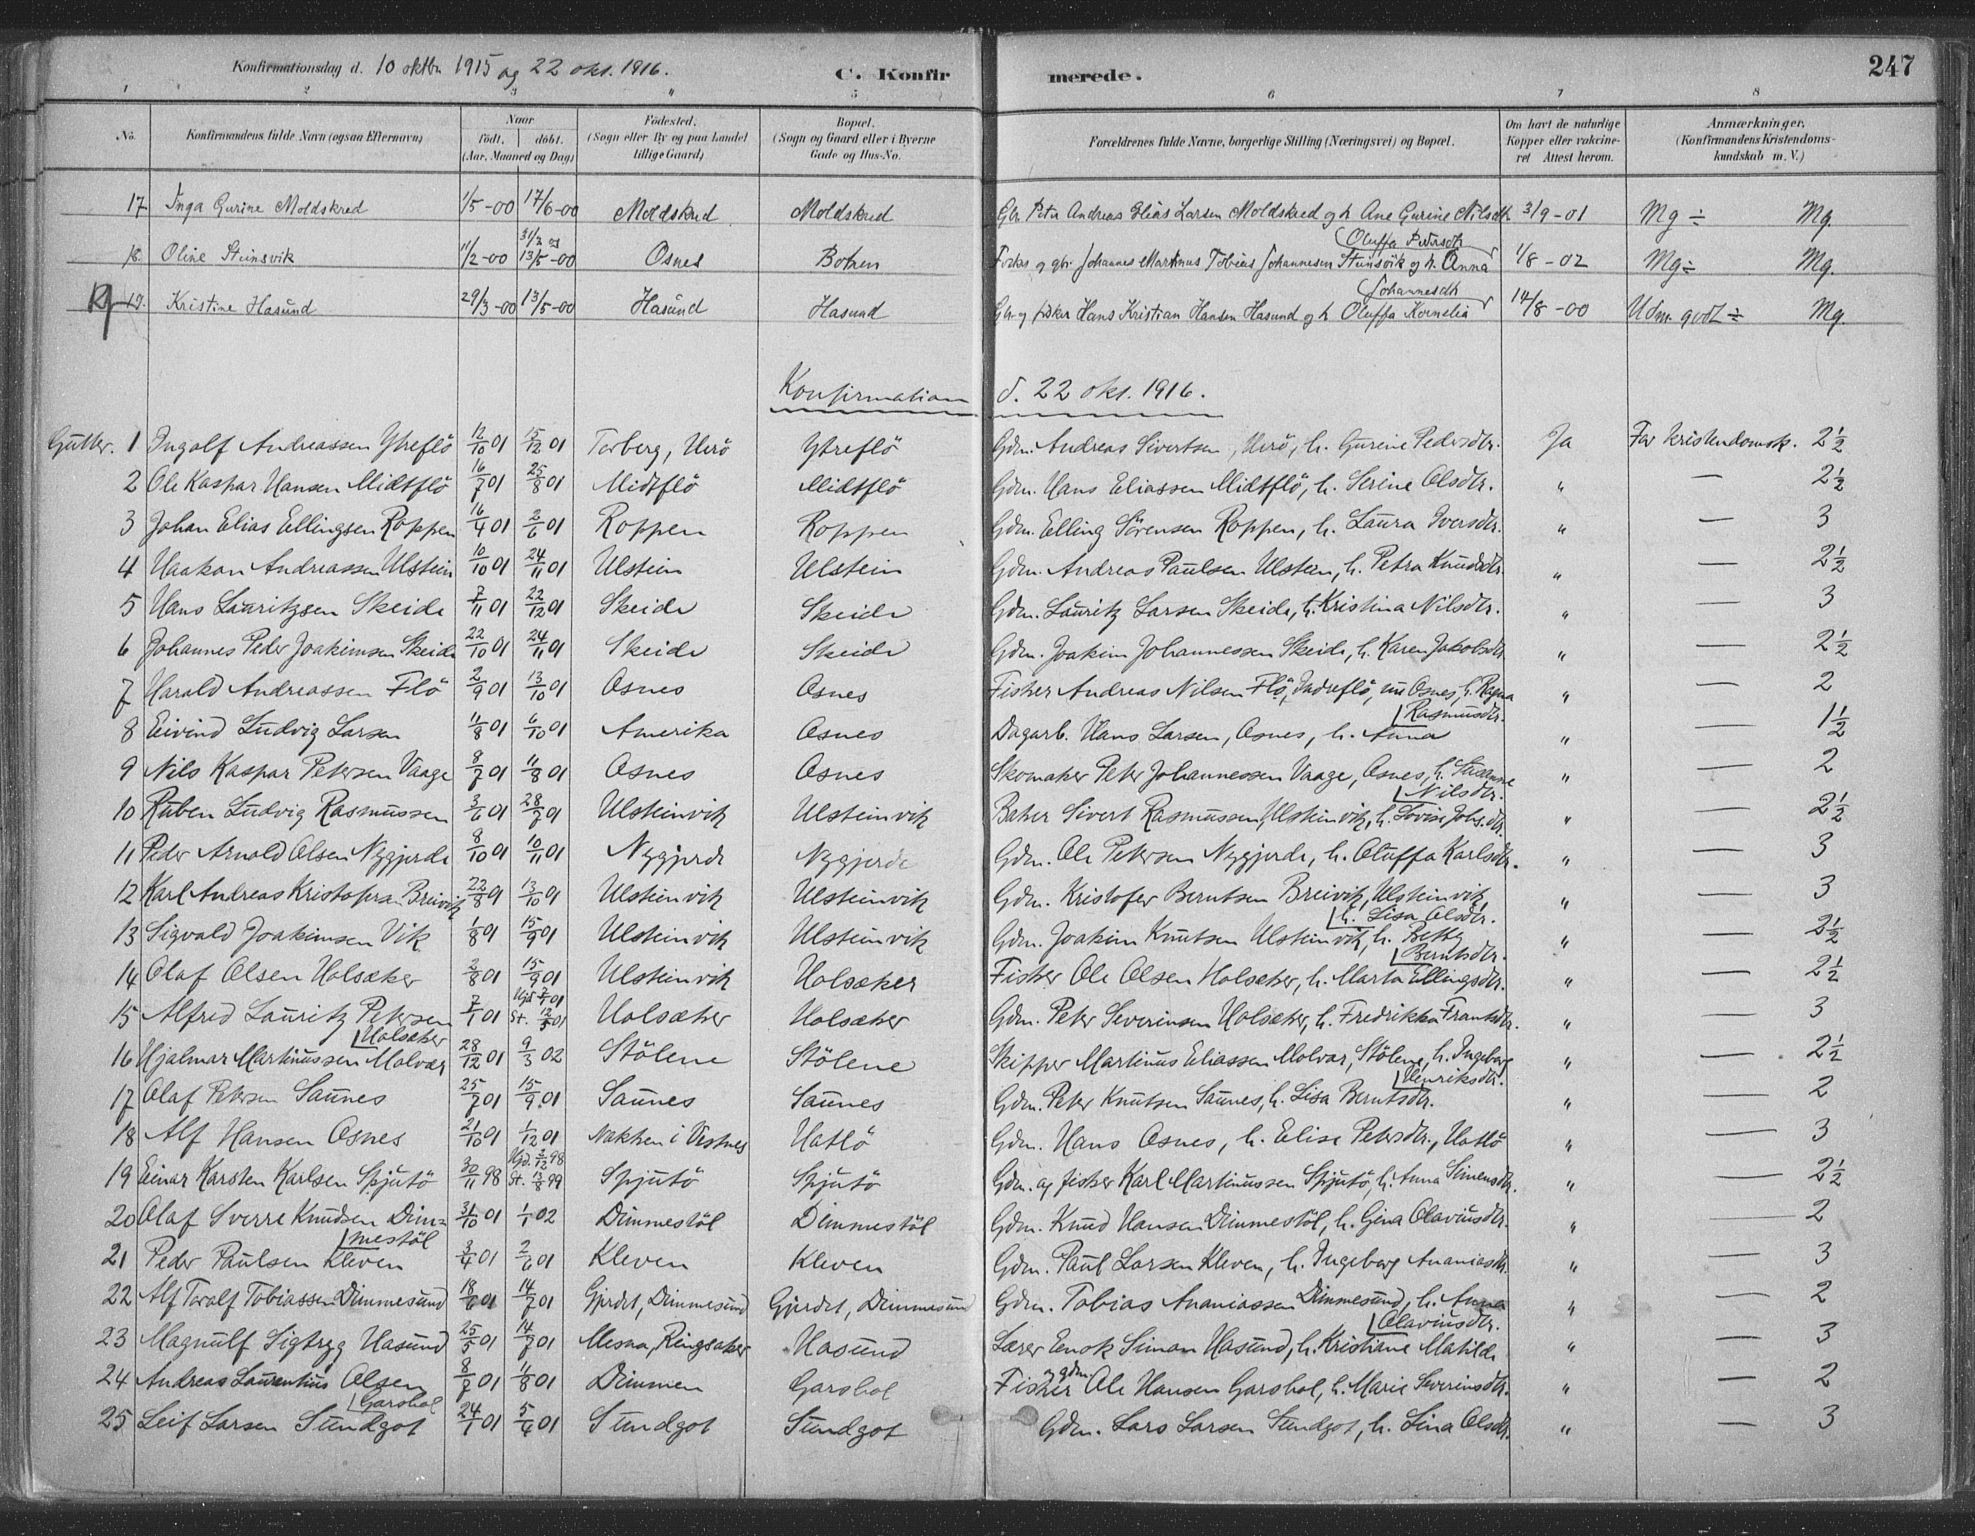 Konfirmationsdag d. 10 oktbr 1915 og 22 okt. 1916.
C. Konfirmerede.
247
1 2 3 4 5 6 7 8
No. Konfirmandens fulde Navn (ogsaa Efternavn) Naar født, døbt. (Aar, Maaned og Dag) Fødested. (Sogn eller By og paa Landet tillige Gaard) Bopæl. (Sogn og Gaard eller i Byerne Gade og Hus-No. Forældrenes fulde Navne, borgerlige Stilling (Næringsvei) og Bopæl. Om havt de naturlige Kopper eller vakcineret Attest herom. Anmærkninger. (Konfirmandens Kristendomskundskab m. V.)
17 Inga Gurine Moldskred 1/5-00 17/6-00 Moldskred Moldskred Gbr. Peter Andreas Elias Larsen Moldskred og h. Ane Gurine Nilsdtr 3/9-01 Mg ÷ Mg.
18. Oline Steinsvik 11/2-00 13/5-00 Osnes Botnen Fisker og gbr. Johannes Martinus Tobias Johannesen Steinsvik og h. Anna Oluffa Pedersdtr 1/8-02 Mg ÷ Mg.
19. Kristine Hasund 29/3-00 13/5-00 Hasund Hasund Gbr. og fisker Hans Kristian Hansen Hasund og h. Oluffa Kornelia Johannesdtr 14/8-00 Udm. godt ÷ Mg.
Konfirmation d. 22 okt. 1916.
Gutter. 1 Ingolf Andreassen Ytreflö 12/10 01 15/12 01 Torberg, Herö Ytreflö Gdm. Andreas Sivertsen, Herö, h. Gurine Pedersdtr. Ja Far kristendomsk. 2 1/2
2 Ole Kaspar Hansen Midtflö 16/7 01 25/8 01 Midtflö Midtflö Gdm. Hans Eliassen Midtflö, h. Serine Olsdtr. " — 2 1/2
3 Johan Elias Ellingsen Roppen 16/4 01 2/6 01 Roppen Roppen Gdm. Elling Sörensen Roppen, h. Laura Iversdtr. " — 3
4 Haakon Andreassen Ulstein 10/10 01 24/11 01 Ulstein Ulstein Gdm. Andreas Paulsen Ulstein, h. Petra Knudsdtr. " — 2 1/2
5 Hans Lauritzsen Skeide 7/11 01 22/12 01 Skeide Skeide Gdm. Lauritz Larsen Skeide, h. Kristina Nilsdtr. " — 3
6 Johannes Peder Joakimsen Skeide 22/10 01 24/11 01 Skeide Skeide Gdm. Joakim Johannessen Skeide, h. Karen Jakobsdtr " — 2 1/2
7 Harald Andreassen Flö 2/9 01 13/10 01 Osnes Osnes Fisker Andreas Nilsen Flö, Indreflö, nu Osnes, h. Ragna Rasmusdtr. " — 2
8 Eivind Ludvig Larsen 11/8 01 6/10 01 Amerika Osnes Dagarb. Hans Larsen, Osnes, h. Anna " — 1 1/2
9 Nils Kaspar Petersen Vaage 8/7 01 11/8 01 Osnes Osnes Skomaker Peter Johannessen Vaage, Osnes, h. Susanne Nilsdtr. " — 2
10 Ruben Ludvig Rasmussen 3/6 01 28/7 01 Ulsteinvik Ulsteinvik Baker Sivert Rasmussen, Ulsteinvik, h. Lovise Johs.dtr. " — 2 1/2
11 Peder Arnold Olsen Nygjerde 8/10 01 10/11 01 Nygjerde Nygjerde Gdm. Ole Petersen Nygjerde, h. Oluffa Karlsdtr. " — 3
12 Karl Andreas Kristofersen Breivik 22/8 01 13/10 01 Ulsteinvik Ulsteinvik Gdm. Kristofer Berntsen Breivik, Ulsteinvik, h. Lisa Olsdtr. " — 3
13 Sigvald Joakimsen Vik 1/8 01 15/9 01 Ulsteinvik Ulsteinvik Gdm. Joakim Knutsen Ulsteinvik, h. Betty Berntsdtr. " — 2 1/2
14 Olaf Olsen Holsæker 2/8 01 15/9 01 Ulsteinvik Holsæker Fisker Ole Olsen Holsæker, h. Marta Ellingsdtr. " — 2 1/2
15 Alfred Lauritz Petersen Holsæker 7/1 01 Hjd. 01 St. 12/5 01 Holsæker Holsæker Gdm. Peter Severinsen Holsæker, h. Fredrikka Frantsdtr. " — 3
16 Hjalmar Martinussen Molvær 28/12 01 9/3 02 Stölene Stölene Skipper Martinus Eliassen Molvær, Stölene, h. Ingeborg Henriksdtr. " — 2 1/2
17 Olaf Petersen Saunes 25/7 01 15/9 01 Saunes Saunes Gdm. Peter Knutsen Saunes, h. Lisa Berntsdtr. " — 2
18 Alf Hansen Osnes 21/10 01 1/12 01 Nakken i Vestnes Hatlö Gdm. Hans Osnes, h. Elise Petersdtr., Hatlö " — 3
19 Einar Karsten Karlsen Spjutö 30/11 98 Hjd. 2/12 98 St. 13/8 99 Spjutö Spjutö Gdm. og fisker Karl Martinussen Spjutö, h. Anna Simensdtr. " — 2 1/2
20 Olaf Sverre Knudsen Dimmestöl 31/10 01 1/1 02 Dimmestöl Dimmestöl Gdm. Knud Hansen Dimmestöl, h. Gina Olaviusdtr. " — 2
21 Peder Paulsen Kleven 3/4 01 2/6 01 Kleven Kleven Gdm. Paul Larsen Kleven, h. Ingeborg Ananiasdtr. " — 3
22 Alf Toralf Tobiassen Dimmesund 18/6 01 14/7 01 Gjerdet, Dimmesund Gjerdet, Dimmesund Gdm. Tobias Ananiassen Dimmesund, h. Anna Olaviusdtr. " — 2
23 Magnulf Sigtryg Hasund 25/5 01 14/7 01 Mesna, Ringsaker Hasund Lærer Enok Simon Hasund, h. Kristiane Matilde " — 3
24 Andreas Laurentius Olsen Garshol 8/7 01 11/8 01 Dimmen Garshol Fisker og gdm. Ole Hansen Garshol, h. Marie Severinsdtr. " — 2
25 Leif Larsen Sundgot 24/1 01 5/4 01 Sundgot Sundgot Gdm. Lars Larsen Sundgot, h. Lina Olsdtr. " — 3